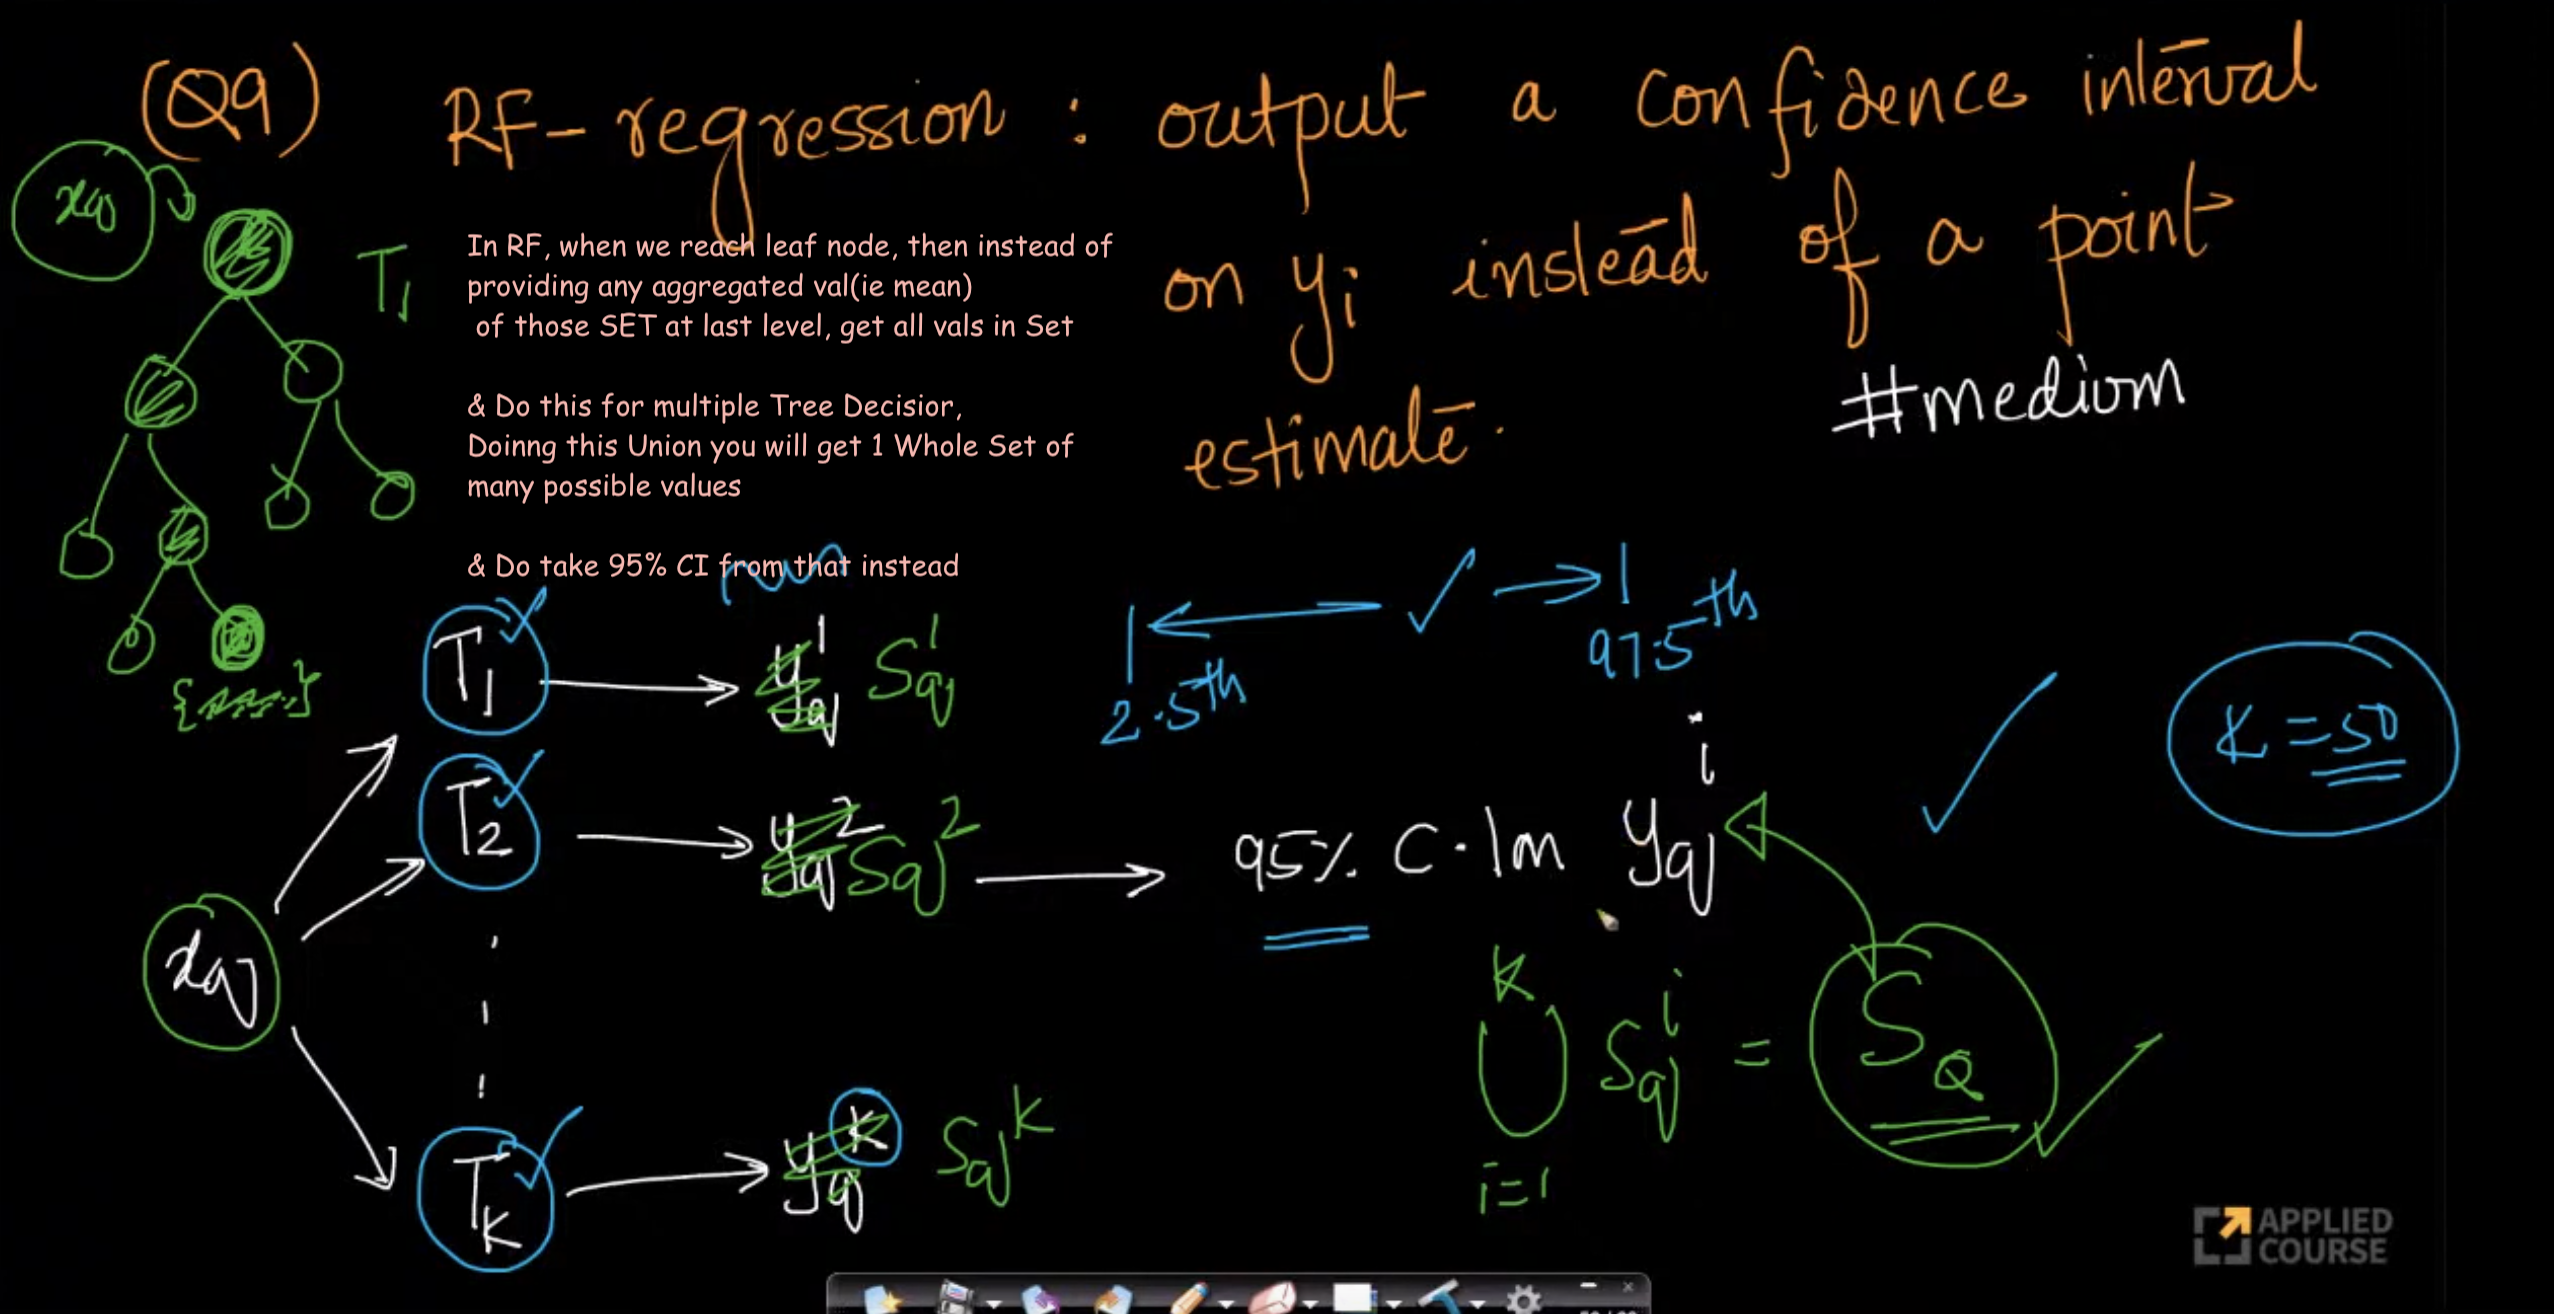 (Q9) RF-regression : output a confidence interval
on yi instead of a point
estimate.
#medium
xq
T1
In RF, when we reach leaf node, then instead of
providing any aggregated val(ie mean)
of those SET at last level, get all vals in Set
& Do this for multiple Tree Decisior,
Doinng this Union you will get 1 Whole Set of
many possible values
& Do take 95% CI from that instead
2.5th
97.5th
K = 50
T1 yq1 Sq1
T2 yq2 Sq2
95% C.I on yqi
xq
K
∪ Sqi = SQ
i=1
TK yqK SqK
APPLIED
COURSE